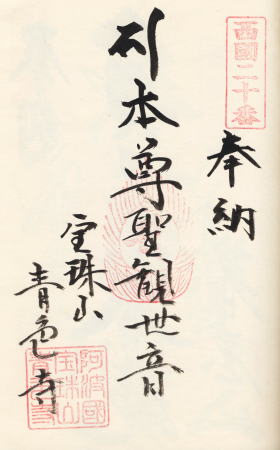 西國二十番
奉納
本尊聖観世音
宝珠山
青色寺
阿波國
宝珠山
青色寺